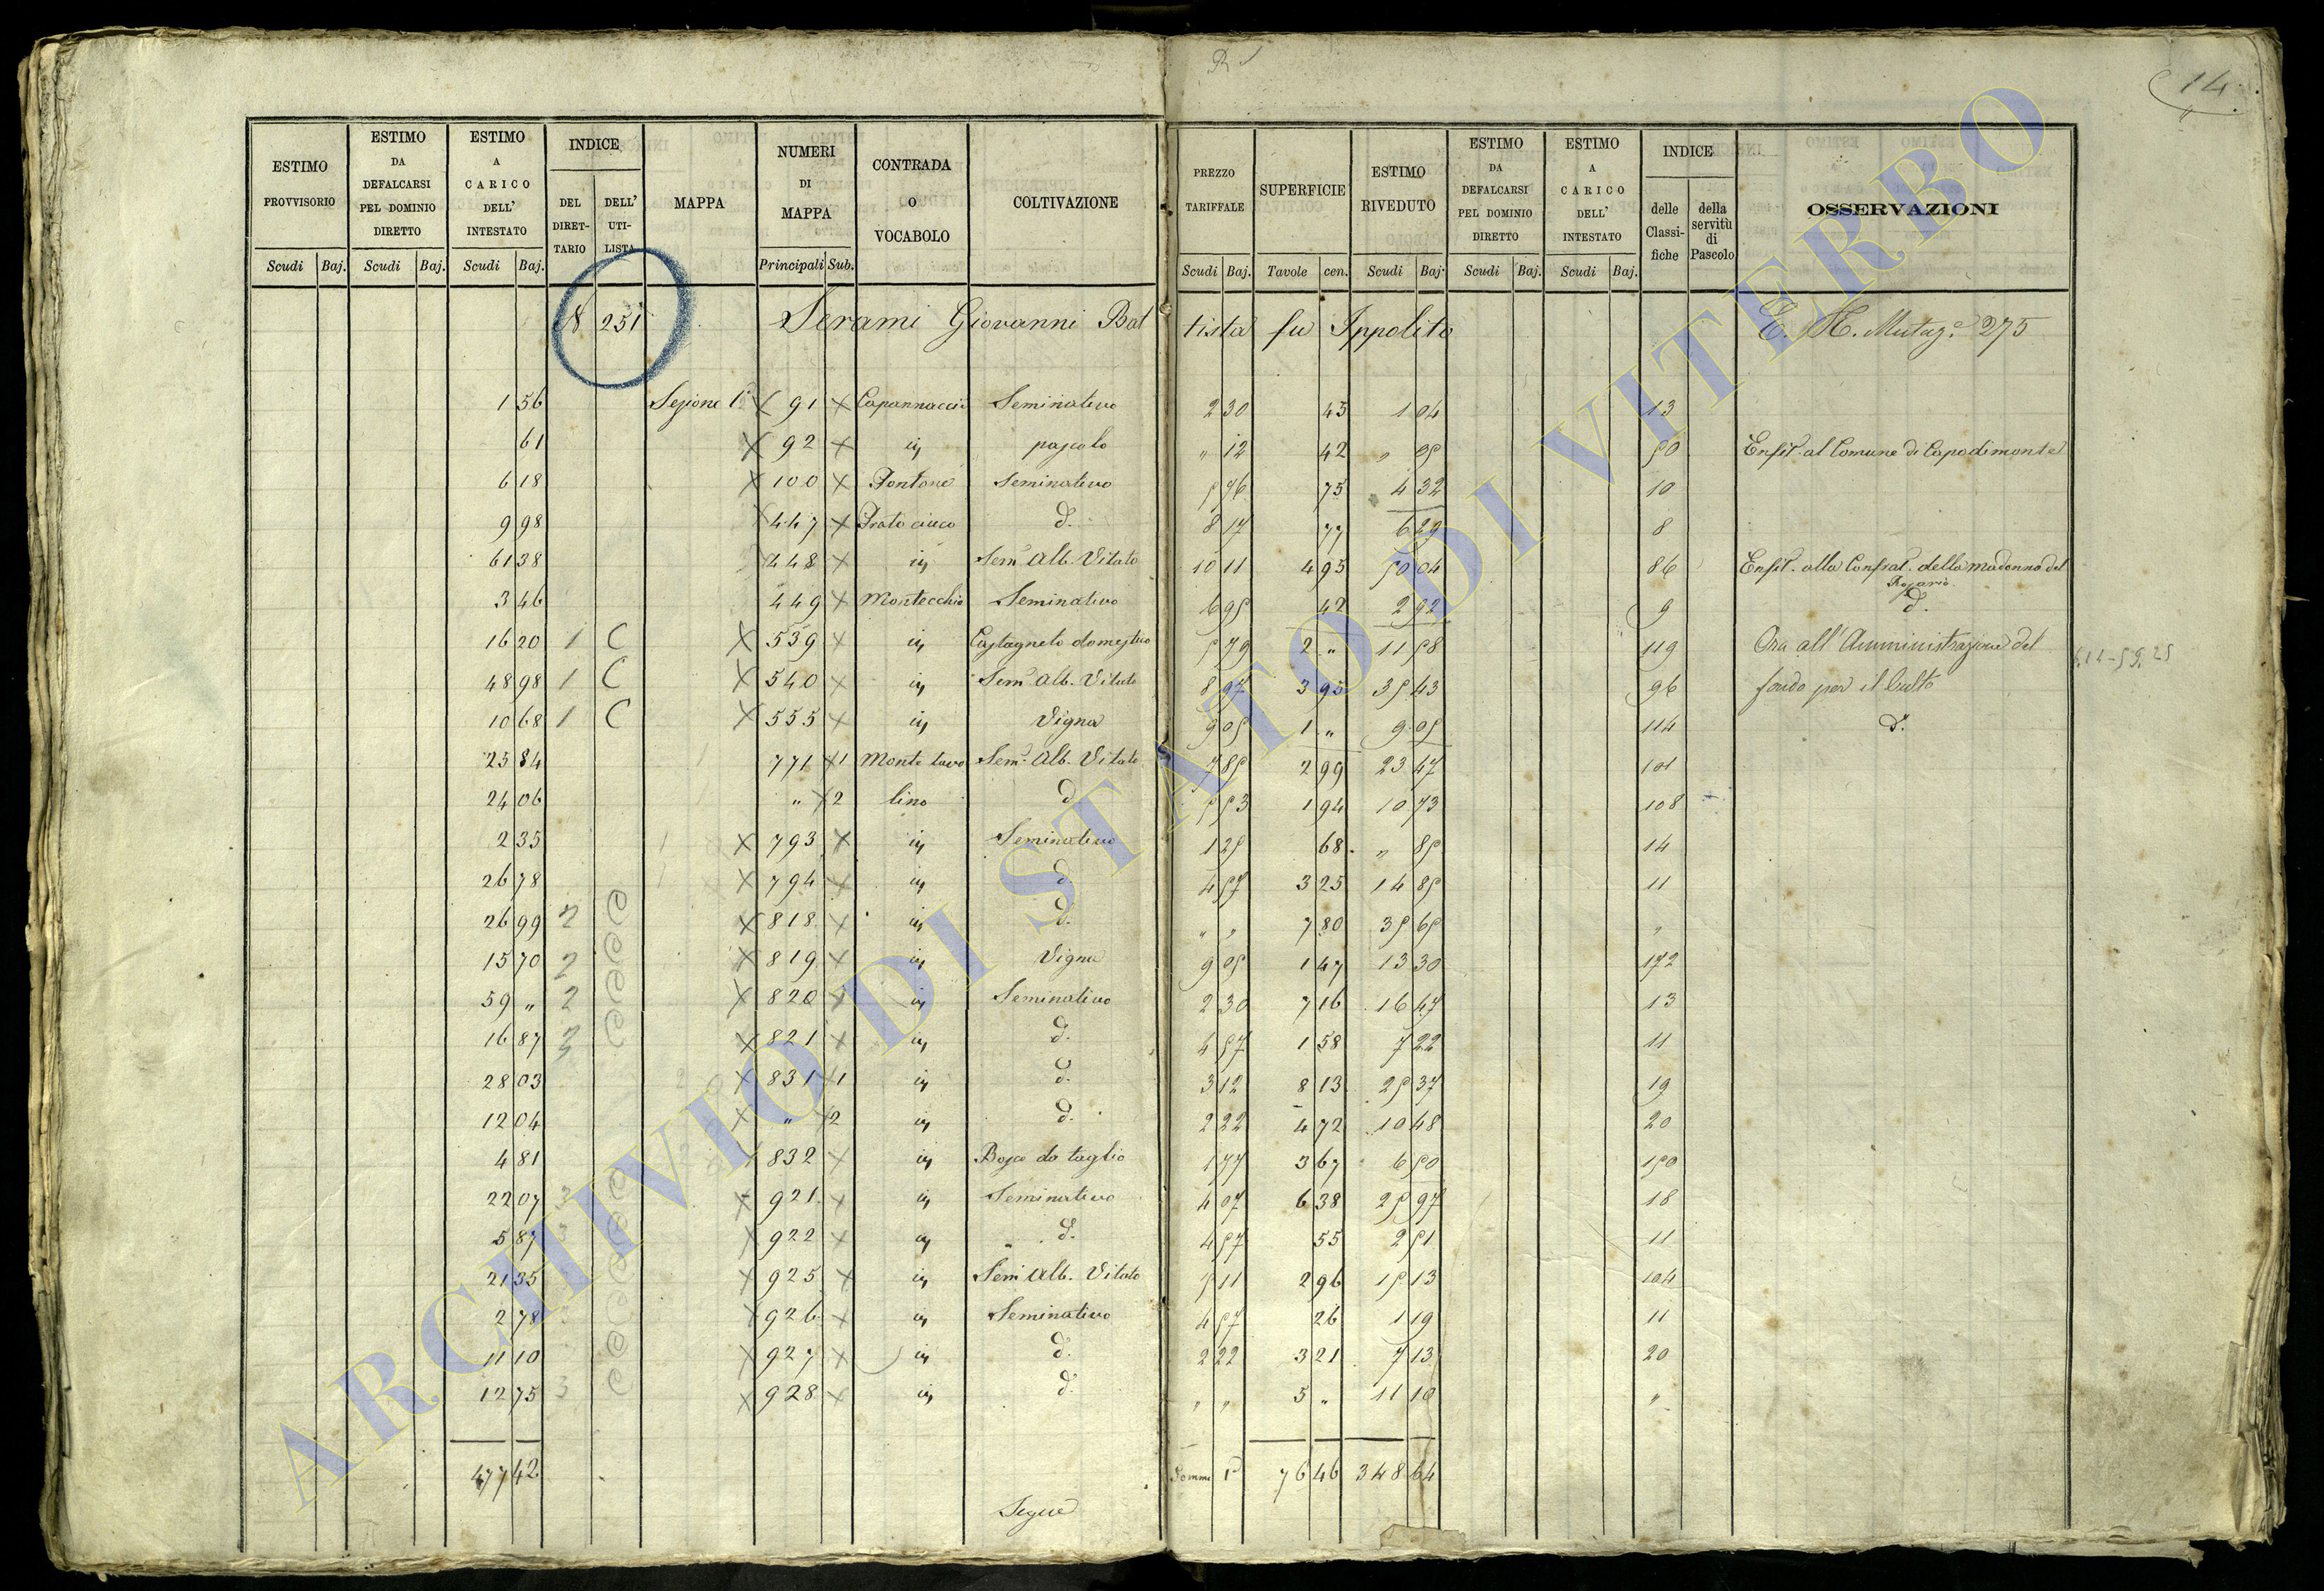 14
ESTIMO PROVVISORIO | ESTIMO DA DEFALCARSI PEL DOMINIO DIRETTO | ESTIMO A CARICO DELL' INTESTATO | INDICE DEL DIRET-TARIO | DELL' UTI-LISTA | MAPPA | NUMERI DI MAPPA | CONTRADA O VOCABOLO | COLTIVAZIONE | PREZZO TARIFFALE | SUPERFICIE | ESTIMO RIVEDUTO | ESTIMO DA DEFALCARSI PEL DOMINIO DIRETTO | ESTIMO A CARICO DELL' INTESTATO | INDICE delle Classi-fiche | della servitù di Pascolo | OSSERVAZIONI
Scudi Baj. | Scudi Baj. | Scudi Baj. | Principali Sub. | Scudi Baj. | Tavole cen. | Scudi Baj. | Scudi Baj. | Scudi Baj.
N 251 Serami Giovanni Battista fu Ippolito 275
1 56 Sezione 1ª X 91 X Capannaccie Seminativo 2 30 45 1 04 13
61 X 92 X id pascolo " 12 42 " 05 50 Enfit. al Comune di Capodimonte
6 18 X 100 X Fontone Seminativo 5 76 75 4 32 10
9 98 X 447 X Prato cieco d. 8 17 77 6 29 8
61 38 448 X id Sem. Alb. Vitato 10 11 4 95 50 04 86 Enfit. alla Confrat. della Madonna del Rosario
3 46 449 X Montecchio Seminativo 6 95 42 2 92 9 d.
16 20 1 C X 539 X id Castagneto domestico 5 79 2 " 11 58 119 Ora all'Amministrazione del
48 98 1 C X 540 X id Sem. Alb. Vitato 8 97 3 95 35 43 96 fondo per il Culto
10 68 1 C X 555 X id Vigna 9 05 1 " 9 05 114 d.
25 84 771 X 1 Monte tavo Sem. Alb. Vitato 7 85 2 99 23 47 101
24 06 " X 2 lino d 5 53 1 94 10 73 108
2 35 X 793 X id Seminativo 1 25 68 " 85 14
26 78 X 794 X id d. 4 57 3 25 14 85 11
26 99 2 X 818 X id d. " " 7 80 35 65 "
15 70 2 X 819 X id Vigna 9 05 1 47 13 30 172
59 " 2 X 820 X id Seminativo 2 30 7 16 16 47 13
16 87 3 X 821 X id d. 4 57 1 58 7 22 11
28 03 X 831 X 1 id d. 3 12 8 13 25 37 19
12 04 X " X 2 id d. 2 22 4 72 10 48 20
4 81 832 X id Bosco da taglio 1 77 3 67 6 50 150
22 07 3 X 921 X id Seminativo 4 07 6 38 25 97 18
5 87 3 X 922 X id d. 4 57 55 2 51 11
21 35 X 925 X id Sem. Alb. Vitato 5 11 2 96 15 13 104
2 78 X 926 X id Seminativo 4 57 26 1 19 11
11 10 X 927 X id d. 2 22 3 21 7 13 20
12 75 3 X 928 X id d. " " 5 " 11 10 "
477 42 Somma 76 46 348 64
Segue
ARCHIVIO DI STATO DI VITERBO